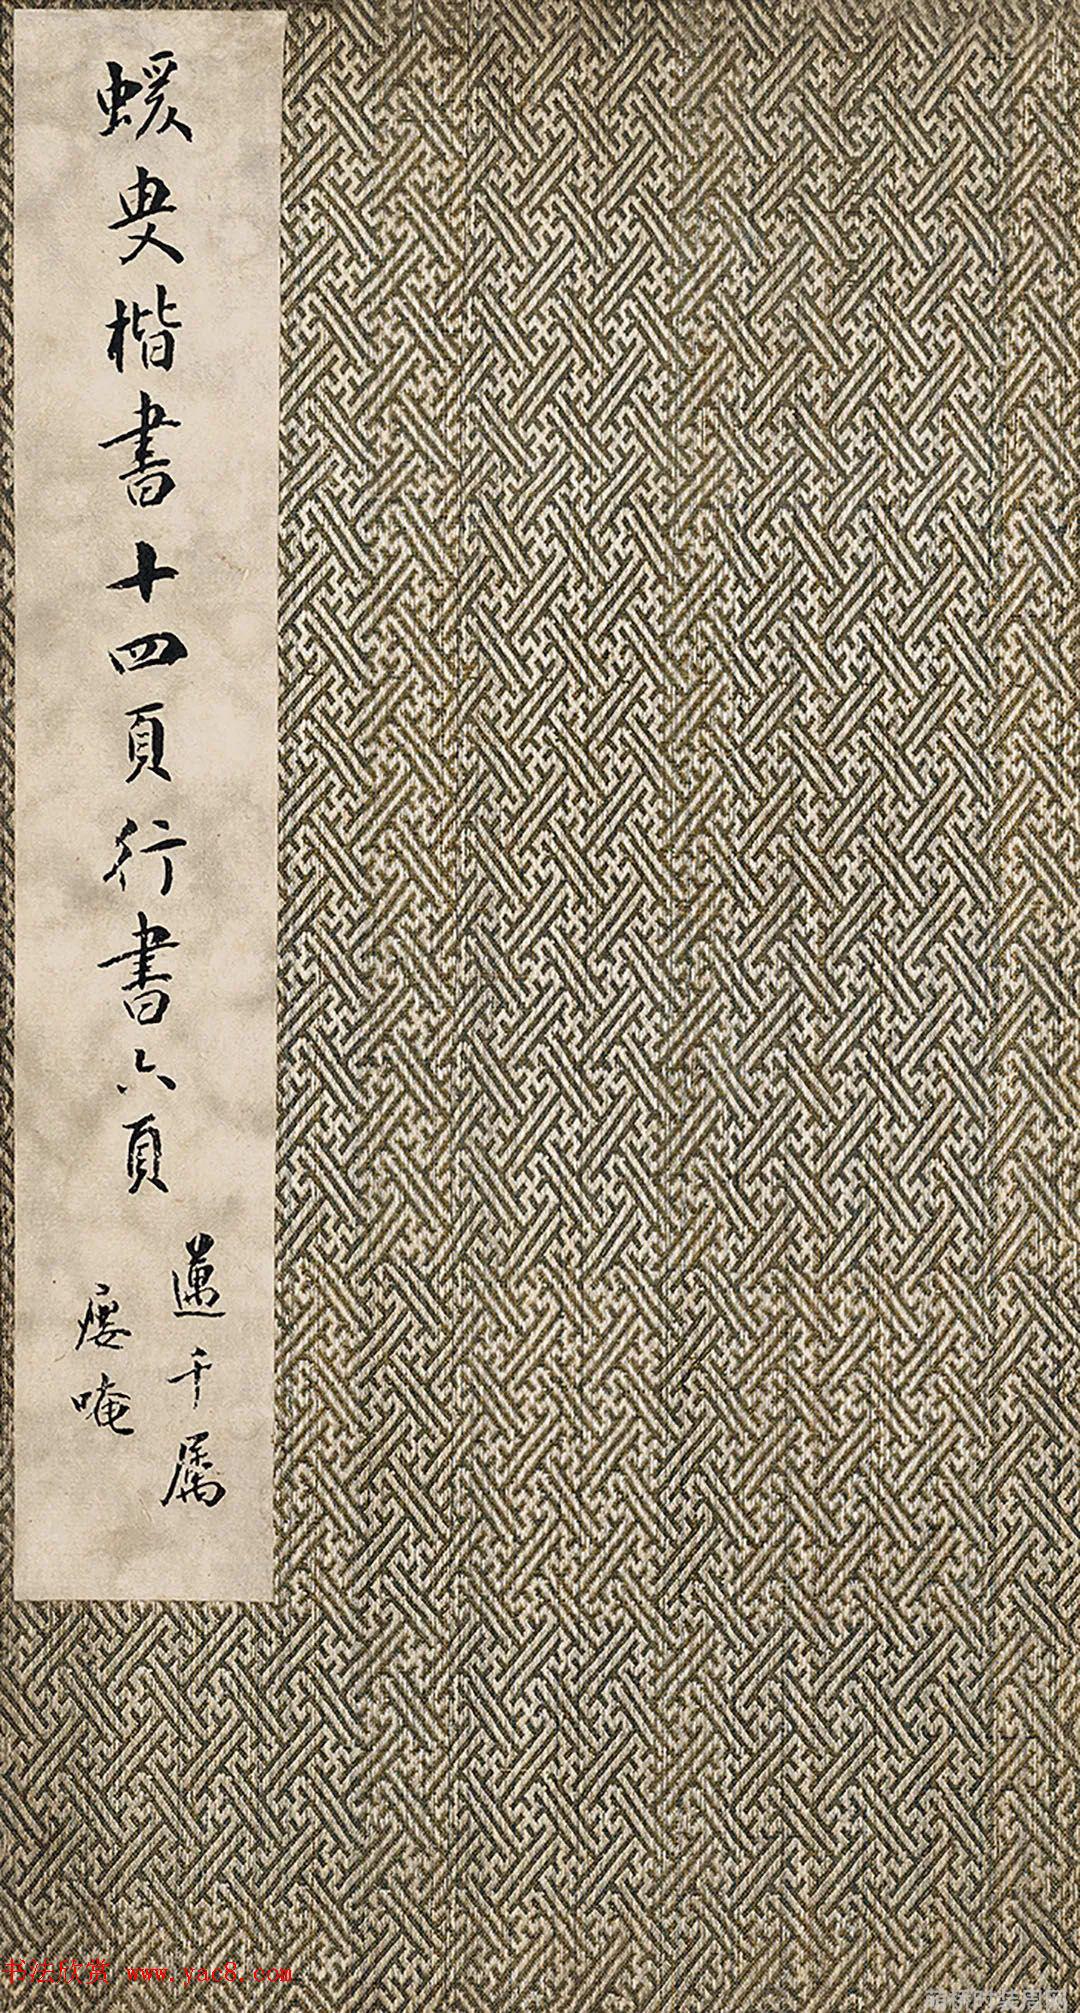 蝯叟楷書十四頁行書六頁
邁千屬
唵
书法欣赏 www.yac8.com